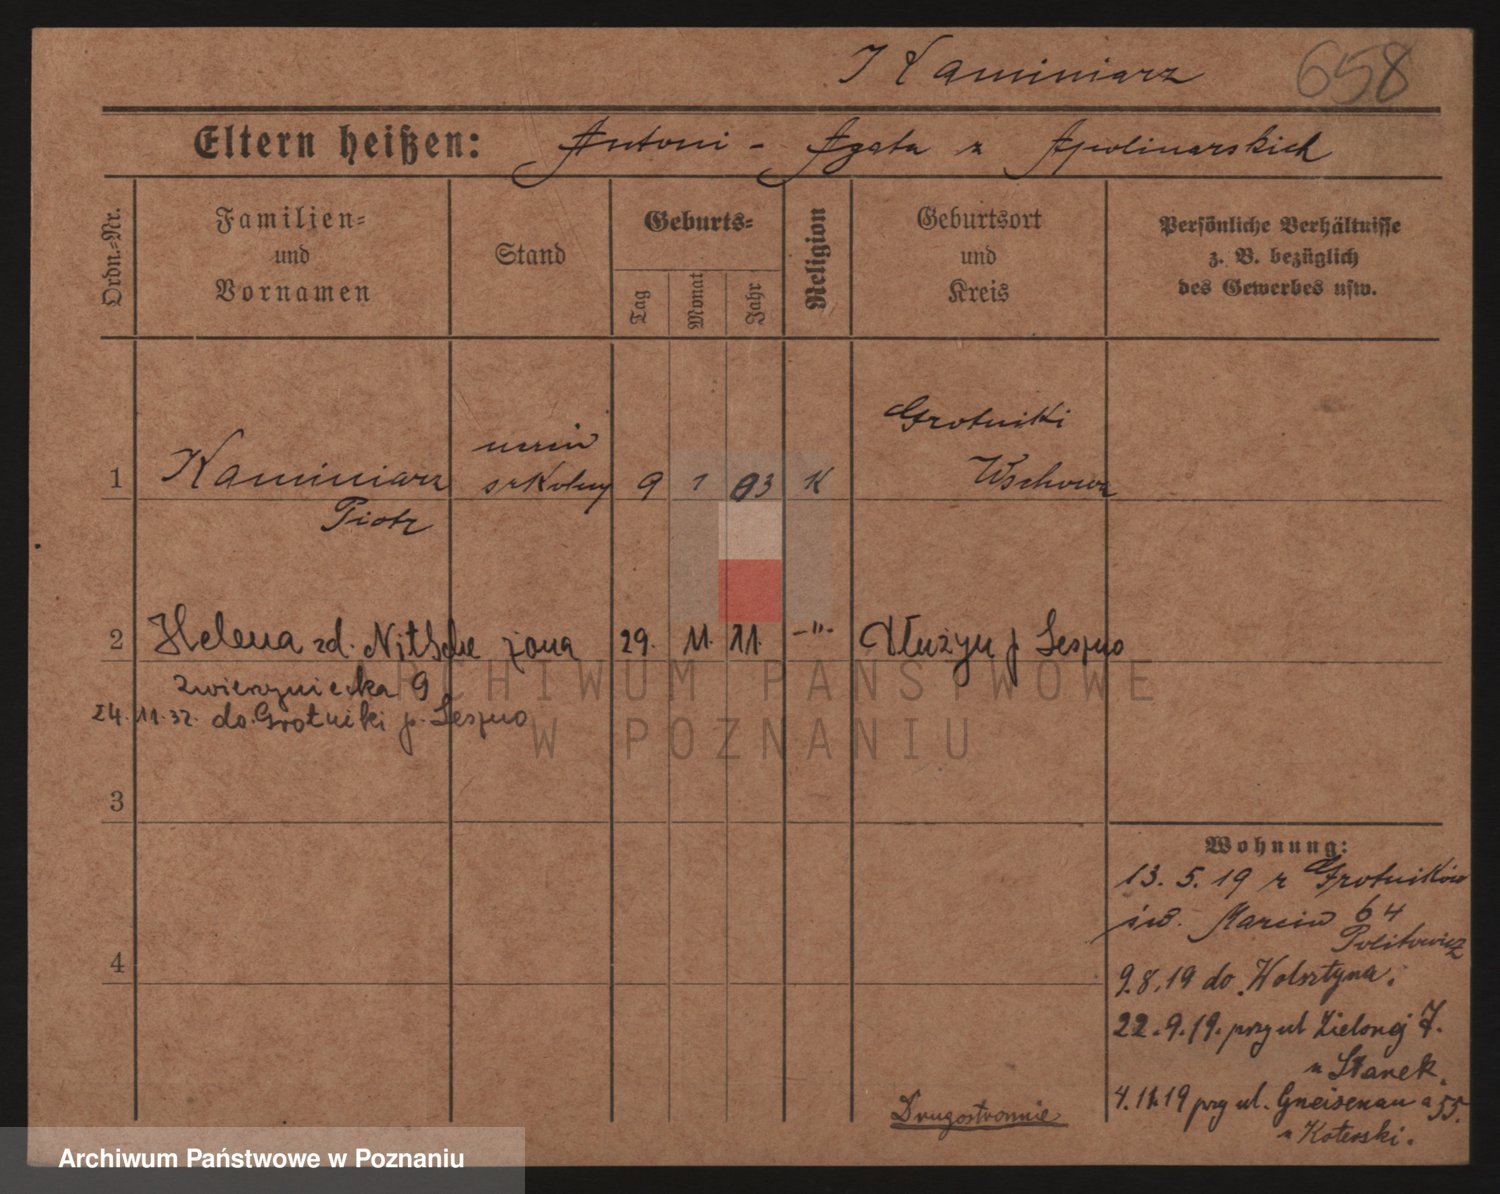 Kaminiarz 658
Eltern heißen: Antoni - Agata z Apolinarskich
Ordn.=Nr.
Familien=
und
Vornamen
Stand
Geburts=
Tag
Monat
Jahr
Religion
Geburtsort
und
Kreis
Persönliche Verhältnisse
z. B. bezüglich
des Gewerbes usw.
1 Kaminiarz
Piotr
szkolny
9 1 03 K
Grotniki
Wschowa
2 Helena zd. Nitsche żona 29. 11. 11. -"- Dłużyn p Leszno
Zwierzyniecka 9
24.11.32. do Grotniki p. Leszno
3
4
Wohnung:
13. 5. 19 z Grotników
św. Marcin 64
Politowicz
9.8.19 do Wolsztyna.
22.9.19. przy ul Zielonej 7.
u Stanek.
4.11.19 przy ul. Gneisenau a 55.
u Koterski.
Drugostronnie
ARCHIWUM PAŃSTWOWE
W POZNANIU
Archiwum Państwowe w Poznaniu